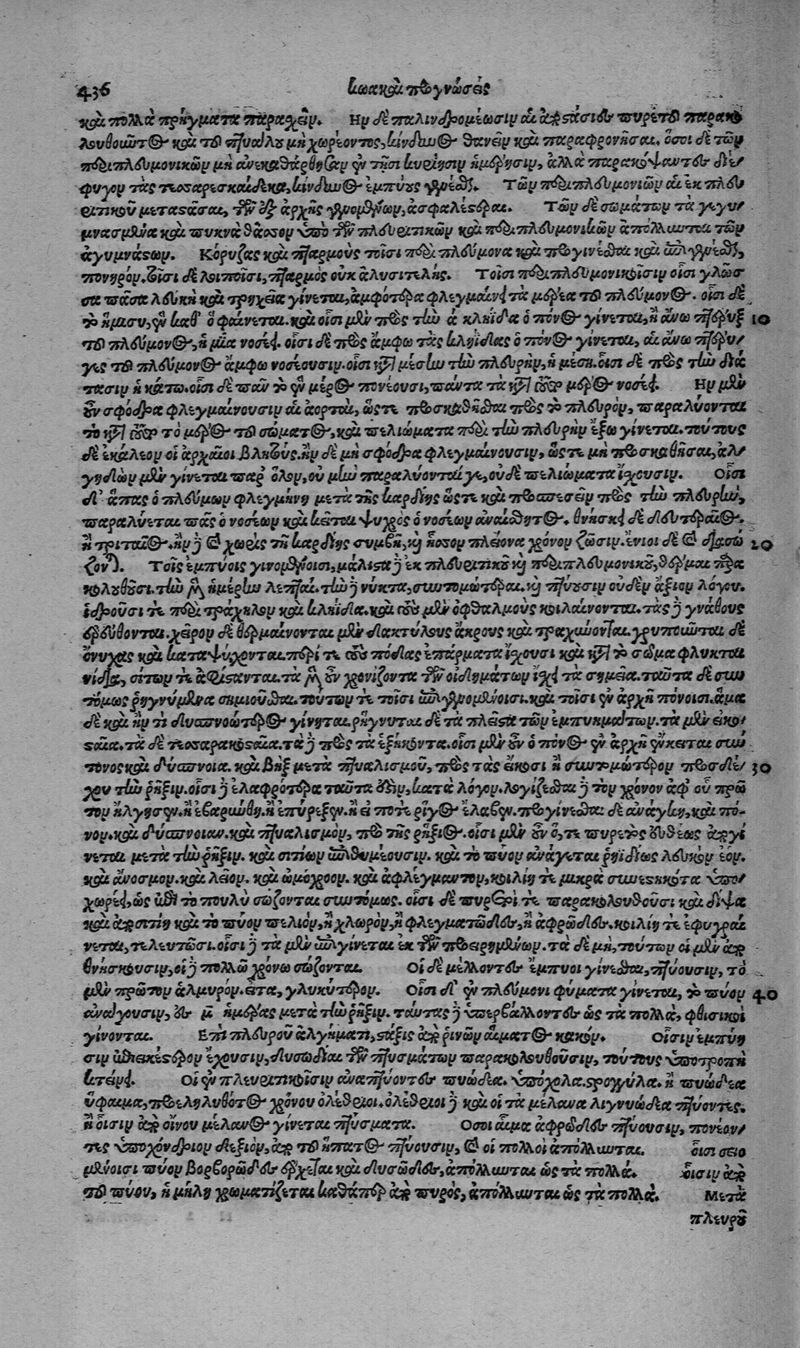 436 κωακαὶ προγνώσεις
καὶ πολλὰ πρήγματα παρασχεῖν. Ην δὲ παλινδρομέωσιν αἱ ἀποστάσιες πυρετοῦ παρακο
λουθοῦντος καὶ τοῦ πτυάλου μὴ χωρέοντος, κίνδυνος θανεῖν καὶ παραφρονῆσαι. ὅσοι δὲ τῶν
περιπλευμονικῶν μὴ ἀνεκαθάρθησαν ἐν τῇσι κυρίῃσιν ἡμέρῃσιν, ἀλλὰ παρακόψαντες διέ/
φυγον τὰς τεσσαρεσκαίδεκα, κίνδυνος ἐμπύους γενέσθαι. Τῶν περιπλευμονιῶν αἱ ἐκ πλευ
ριτικοῦ μεταστᾶσαι, τῶν ἐξ ἀρχῆς γενομένων, ἀσφαλέστεραι. Τῶν δὲ σωμάτων τὰ γεγυ/
μνασμένα καὶ πυκνὰ θᾶσσον ὑπὸ τῶν πλευριτικῶν καὶ περιπλευμονικῶν ἀπόλλυται τῶν
ἀγυμνάστων. Κόρυζας καὶ πταρμοὺς τοῖσι περὶ πλεύμονα καὶ προγίνεσθαι καὶ ἐπιγενέσθαι,
πονηρόν. τοῖσι δὲ λοιποῖσι, πταρμὸς οὐκ ἀλυσιτελής. Τοῖσι περιπλευμονικοῖσιν οἷσι γλῶσ
σα πᾶσα λευκὴ καὶ τρηχεῖα γίνεται, ἀμφότερα φλεγμαίνει τὰ μέρεα τοῦ πλεύμονος. οἷσι δὲ
τὸ ἥμισυ, ἐν καθ' ὃ φαίνεται. καὶ οἷσι μὲν πρὸς τὴν ἀ κληῖδα ὁ πόνος γίνεται, ἡ ἄνω πτέρυξ 10
τοῦ πλεύμονος, ἡ μία νοσέει. οἷσι δὲ πρὸς ἄμφω τὰς κληῖδας ὁ πόνος γίνεται, αἱ ἄνω πτέρυ/
γες τοῦ πλεύμονος ἄμφω νοσέουσιν. οἷσι κατὰ μέσην τὴν πλευρὴν, ἡ μέση. οἷσι δὲ πρὸς τὴν διά
τασιν ἡ κάτω. οἷσι δὲ πᾶν τὸ ἓν μέρος πονέουσι, πάντα τὰ κατὰ τοῦτο μέρος νοσέει. Ην μὲν
οὖν σφόδρα φλεγμαίνουσιν αἱ ἀορταὶ, ὥστε προσκαθῆσθαι πρὸς τὸ πλευρὸν, παραλύονται
τὸ κατὰ τοῦτο τὸ μέρος τοῦ σώματος, καὶ πελιώματα περὶ τὴν πλευρὴν ἔξω γίνεται. τούτους
δὲ ἐκάλεον οἱ ἀρχαῖοι βλητούς. ἢν δὲ μὴ σφόδρα φλεγμαίνουσιν, ὥστε μὴ προσκαθῆσαι, ἀλ/
γηδὼν μὲν γίνεται παρ' ὅλον, οὐ μὴν παραλύονταί γε, οὐδὲ πελιώματα ἴσχουσιν. Οἷσι
δ' ἅπας ὁ πλεύμων φλεγμήνῃ μετὰ τῆς καρδίης ὥστε καὶ προσπεσεῖν πρὸς τὴν πλευρὴν,
παραλύεται πᾶς ὁ νοσέων καὶ κεῖται ψυχρὸς ὁ νοσέων ἀναίσθητος. θνήσκει δὲ δευτεραῖος
ἢ τριταῖος. ἢν δὲ καὶ χωρὶς τῇ καρδίης συμβῇ, καὶ ἧσσον πλείονα χρόνον ζῶσιν. ἔνιοι δὲ καὶ διασώ 20
ζονται. Τοῖς ἐμπύοις γινομένοισι, μάλιστα δὲ ἐκ πλευριτικοῦ καὶ περιπλευμονικοῦ, θέρμαι παρα
κολουθοῦσι. τὴν μὲν ἡμέρην λεπταί. τὴν δὲ νύκτα, συντομώτεραι. καὶ πτύουσιν οὐδὲν ἄξιον λόγου.
ἱδροῦσι τε περὶ τράχηλον καὶ κληῖδα. καὶ τοὺς μὲν ὀφθαλμοὺς κοιλαίνονται. τὰς δὲ γνάθους
ἐρεύθονται. χεῖρον δὲ θερμαίνονται μὲν δακτύλους ἄκρους καὶ τραχύνονται. γρυποῦνται δὲ
ὄνυχας καὶ καταψύχονται. περί τε τοὺς πόδας ἐπάρματα ἴσχουσι καὶ κατὰ τὸ σῶμα φλύκται
νίδια, σίτων τε ἀφίστανται. τὰ μὲν οὖν χρονίζοντα τῶν οἰδημάτων ἴσχει τὰ σημεῖα. ταῦτα δὲ συν
τόμως ῥηγνύμενα σημιοῦσθαι. τούτων τε τοῖσι ἐπιγενομένοισι. καὶ τοῖσι ἐν ἀρχῇ πόνοισι. ἅμα
δὲ καὶ ἤν τι δυσπνοώτερος γίνηται. ῥήγνυται δὲ τὰ πλεῖστα τῶν ἐμπυημάτων. τὰ μὲν εἰκο/
σταῖα. τὰ δὲ τεσσαρακοσταῖα. τὰ δὲ πρὸς τὰ ἑξήκοντα. οἷσι μὲν οὖν ὁ πόνος ἐν ἀρχῇ ἔγκειται σύν
τονος καὶ δύσπνοια. καὶ βὴξ μετὰ πτυαλισμοῦ, πρὸς τὰς εἴκοσι ἢ συντομώτερον προσδέ/ 30
χου τὴν ῥῆξιν. οἷσι δὲ ἐλαφρότερα ταῦτα ἐῇ, κατὰ λόγον. λογίζεσθαι δὲ τὸν χρόνον ἀφ' οὗ πρῶ
τον ἤλγησεν. ἢ ἐβαρύνθη. ἢ ἐπύρεξεν. ἢ εἴ ποτε ῥῖγος ἔλαβεν. προγίνεσθαι δὲ ἀνάγκη, καὶ πό-
νον. καὶ δύσπνοιαν. καὶ πτυαλισμὸν, πρὸ τῆς ῥήξιος. οἷσι μὲν οὖν ὅ, τε πυρετὸς εὐθέως ἀπογί
νεται μετὰ τὴν ῥῆξιν. καὶ σιτίων ἐπιθυμέουσιν. καὶ τὸ πύον ἀνάγεται ῥηϊδίως λευκὸν ἐὸν.
καὶ ἄνοσμον. καὶ λεῖον. καὶ ὁμόχροον. καὶ ἀφλέγμαντον, κοιλίη τε μικρὰ συνεστηκότα ὑπο/
χωρέει, ὡς ἐπὶ τὸ πουλὺ σώζονται συντόμως. οἷσι δὲ πυρετοί τε παρακολουθοῦσι καὶ δίψα
καὶ ἀποσιτίη καὶ τὸ πύον πελιὸν, ἢ χλωρὸν, ἢ φλεγματῶδες, ἢ ἀφρῶδες. κοιλίη τε ἐφυγραί
νεται, τελευτῶσι. οἷσι δὲ τὰ μὲν ἐπιγίνεται ἐκ τῶν προειρημένων. τὰ δὲ μὴ, τούτων οἱ μὲν ἀπο
θνήσκουσιν, οἱ δὲ πολλῷ χρόνῳ σώζονται. Οἱ δὲ μέλλοντες ἔμπυοι γίνεσθαι, πτύουσιν, τὸ
μὲν πρῶτον ἁλμυρὸν. εἶτα, γλυκύτερον. Οἷσι δ' ἐν πλεύμονι φύματα γίνεται, τὸ πύον 40
ἀνάγουσιν, ἐς μ̄ ἡμέρας μετὰ τὴν ῥῆξιν. ταύτας δὲ ὑπερβάλλοντες ὡς τὰ πολλὰ, φθισικοὶ
γίνονται. Επὶ πλευροῦ ἀλγήματι, στάξις ἀπὸ ῥινῶν αἵματος κακόν. Οἷσιν ἐμπύη
σιν ἐπιεικέστερον ἔχουσιν, δυσωδίαι τῶν πτυσμάτων παρακολουθοῦσιν, τούτους ὑποτροπὴ
κτείνει. Οἱ ἐν πλευριτικοῖσιν ἀναπτύοντες πυώδεα. ὑπόχολα. στρογγύλα. ἢ πυώδεα
ὕφαιμα, προεληλυθότος χρόνου ὀλέθριοι. ὀλέθριοι δὲ καὶ οἱ τὰ μέλανα λιγνυώδεα πτύοντες.
ἢ οἷσιν ἀπὸ οἴνου μέλανος γίνεται πτύσματα. Οσοι αἷμα ἀφρῶδες πτύουσιν, πονέον/
τες ὑποχόνδριον δεξιὸν, ἀπὸ τοῦ ἥπατος πτύουσιν, καὶ οἱ πολλοὶ ἀπόλλυνται. οἷσι σειο
μένοισι πύον βορβορῶδες ἔρχεται καὶ δυσῶδες, ἀπόλλυνται ὡς τὰ πολλά. οἷσιν ἀπὸ
τοῦ πύου, ἡ μήλη χρωματίζεται καθάπερ ἀπὸ πυρὸς, ἀπόλλυνται ὡς τὰ πολλά. Μετὰ
πλευροῦ